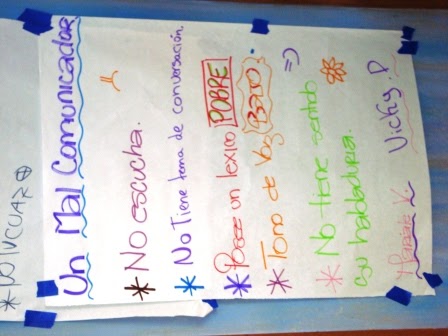 Un Mal Comunicador
* No escucha.
* No Tiene tema de conversación.
* Posee un lexico POBRE
* Tono de Voz BAJO.
* No tiene sentido
su habladuria.
Vicky P